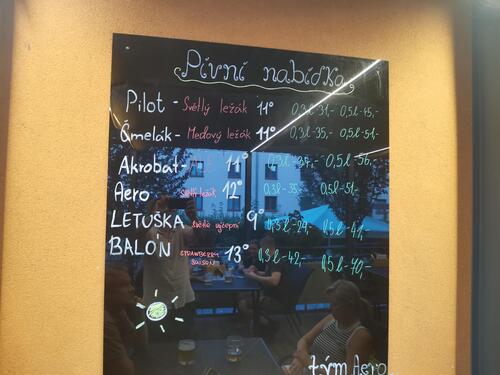 Pivní nabídka
Pilot - Světlý ležák 11° 0,3l-31,- 0,5l-45,-
Čmelák - Medový ležák 11° 0,3l-35,- 0,5l-51,-
Akrobat - 11° 0,3l-37,- 0,5l-56,-
Aero - Světlý ležák 12° 0,3l-35,- 0,5l-51,-
LETUŠKA světlé výčepní 9° 0,3l-29,- 0,5l-41,-
BALÓN STRAWBERRY 13° 0,3l-42,- 0,5l-70,-
tým Aero